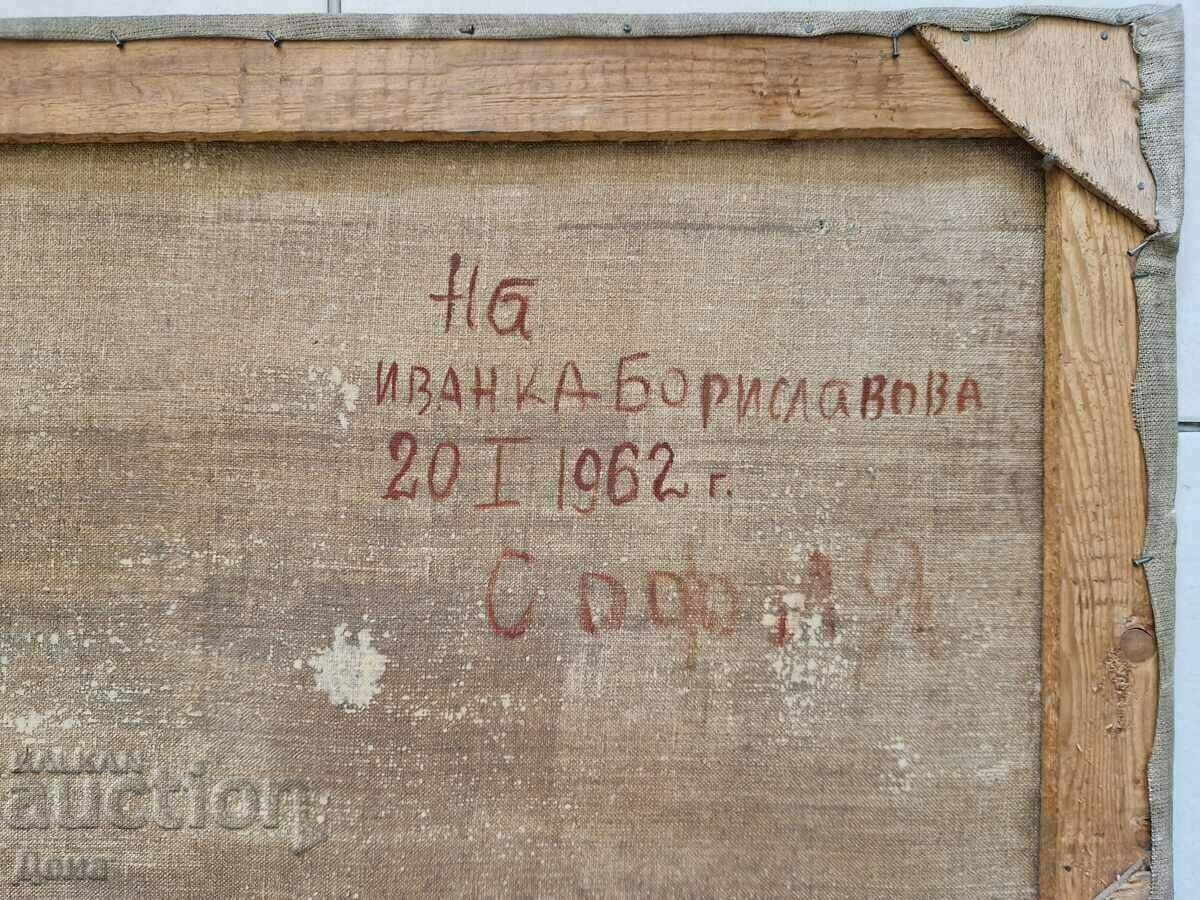 На
ИВАНКА БОРИСЛАВОВА
20 I 1962 г.
София
BALKAN
auction
Дома